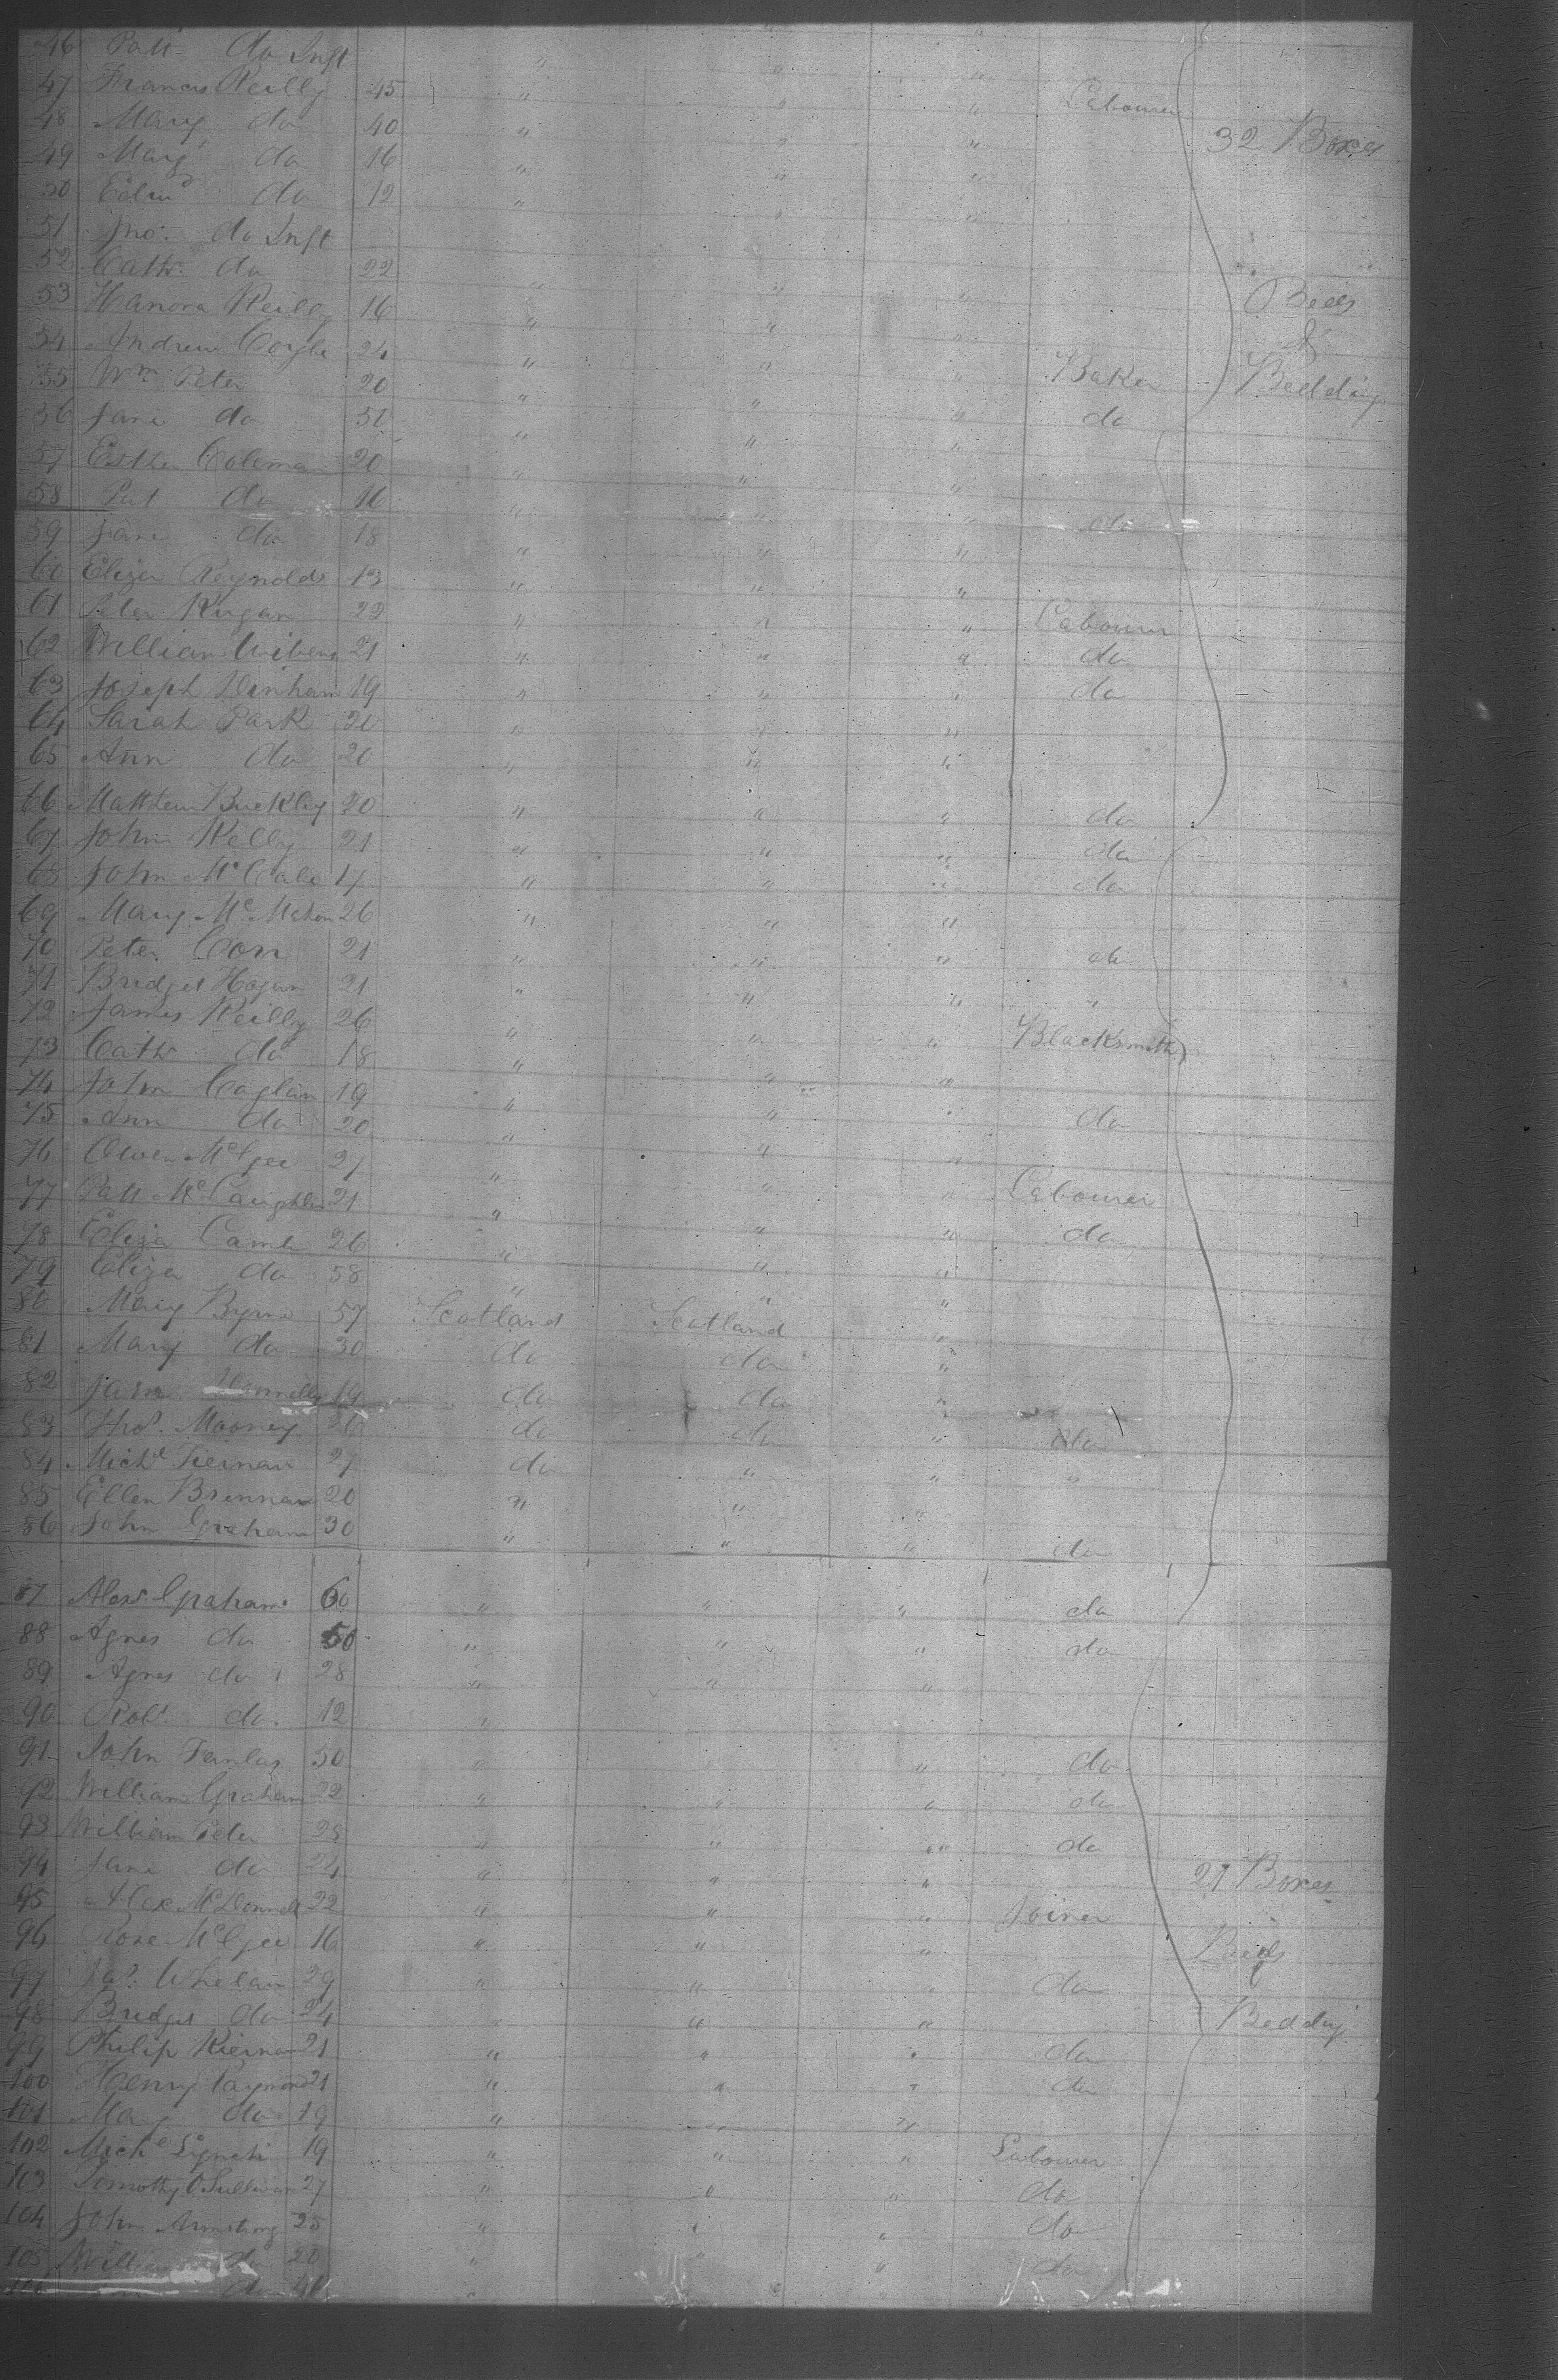 46 Patt do Inft " " "
47 Francis Reilly 45 " " " Labourer
48 Mary do 40 " " " 32 Boxes
49 Marg do 16 " " "
50 Edmd do 12 " " "
51 Jno. do Inft
52 Cathe do 22 " " "
53 Hanora Reilly 16 " " " Beds
54 Andrew Coyle 24 " " " &
55 Wm Peter 20 " " " Baker Bedding
56 Jane do 30 " " " do
57 Esther Coleman 20 " " "
58 Pat do 16 " " "
59 Jane do 18 " " " do
60 Eliza Reynolds 13 " " "
61 Peter Kugan 22 " " " Labourer
62 William 21 " " " do
63 Joseph Dinham 19 " " " do
64 Sarah Park 20 " " "
65 Ann do 20 " " "
66 Matthew Buckley 20 " " " do
67 John Kelly 21 " " " do
68 John McCabe 17 " " " do
69 Mary McMahon 26 " " "
70 Peter Corr 21 " " " do
71 Bridget Hogan 21 " " " "
72 James Reilly 26 " " " Blacksmith
73 Cathe do 18 " " "
74 John Caglan 19 " " "
75 Ann do 20 " " " do
76 Owen McGee 27 " " "
77 Patt McLaughlin 21 " " " Labourer
78 Eliza 26 " " " do
79 Eliza do 58 " " "
80 Mary Byrne 57 Scotland Scotland "
81 Mary do 30 do do "
82 Jane Donnelly 19 do do "
83 Thos. Mooney 20 do do " do
84 Michl Tiernan 27 do " " "
85 Ellen Brennan 20 " " "
86 John Graham 30 " " " do
87 Alexr Graham 60 " " " do
88 Agnes do 50 " " " do
89 Agnes do 28 " " "
90 Robt. do. 12 "
91 John 50 " " " do
92 William Graham 22 " " " do
93 William Peter 25 " " " do
94 Jane do 24 " " " 27 Boxes
95 Alex McDonnell 22 " " " Joiner
96 Rose McGee 16 " " " Beds
97 Jas. Whelan 29 " " " do &
98 Bridget do 24 " " " Bedding
99 Philip Kiernan 21 " " " do
100 Henry Raymond 21 " " " do
101 Mary do 19 " " "
102 Michl Lynch 19 " " " Labourer
103 Timothy O'Sullivan 27 " " " do
104 John Armstrong 25 " " " do
105 William do 20 " " " do
106 do